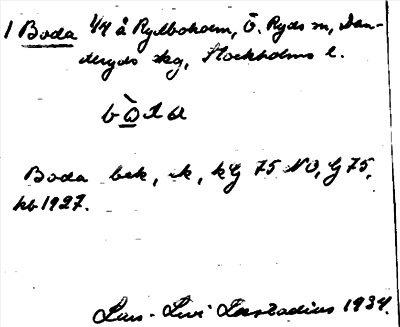 1 Boda 1/4 å Rydboholm, Ö. Ryds sn, Dan-
deryds skg, Stockholms l.
bò̲da
Boda bek, ek, kG 75 NO, G 75,
kb 1927.
Lars-Levi Læstadius 1934.